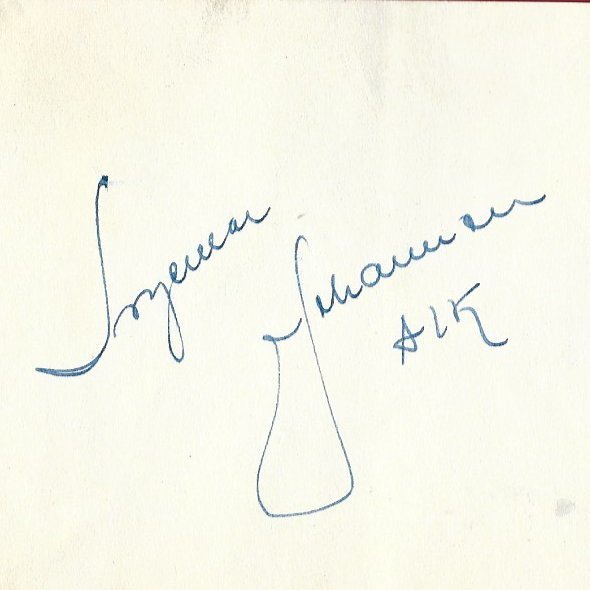 Ingemar
Johansson
AIK